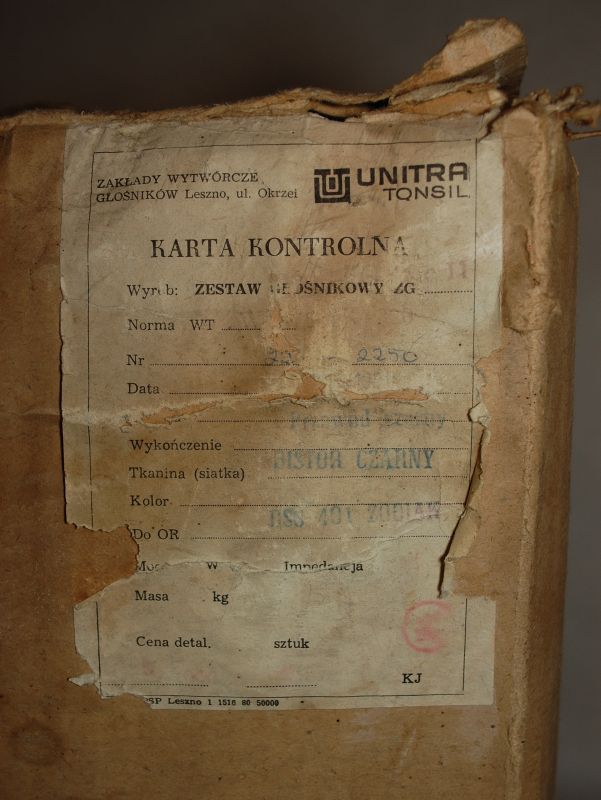 ZAKŁADY WYTWÓRCZE
GŁOŚNIKÓW Leszno, ul. Okrzei
UNITRA
TONSIL
KARTA KONTROLNA
Wyrób: ZESTAW GŁOŚNIKOWY ZG
Norma WT
Nr 2250
Data
Wykończenie
Tkanina (siatka) BISTOR CZARNY
Kolor
Do OR DSS 401
W Impedancja
Masa kg
Cena detal. sztuk
KJ
PSP Leszno 1 1516 80 50000